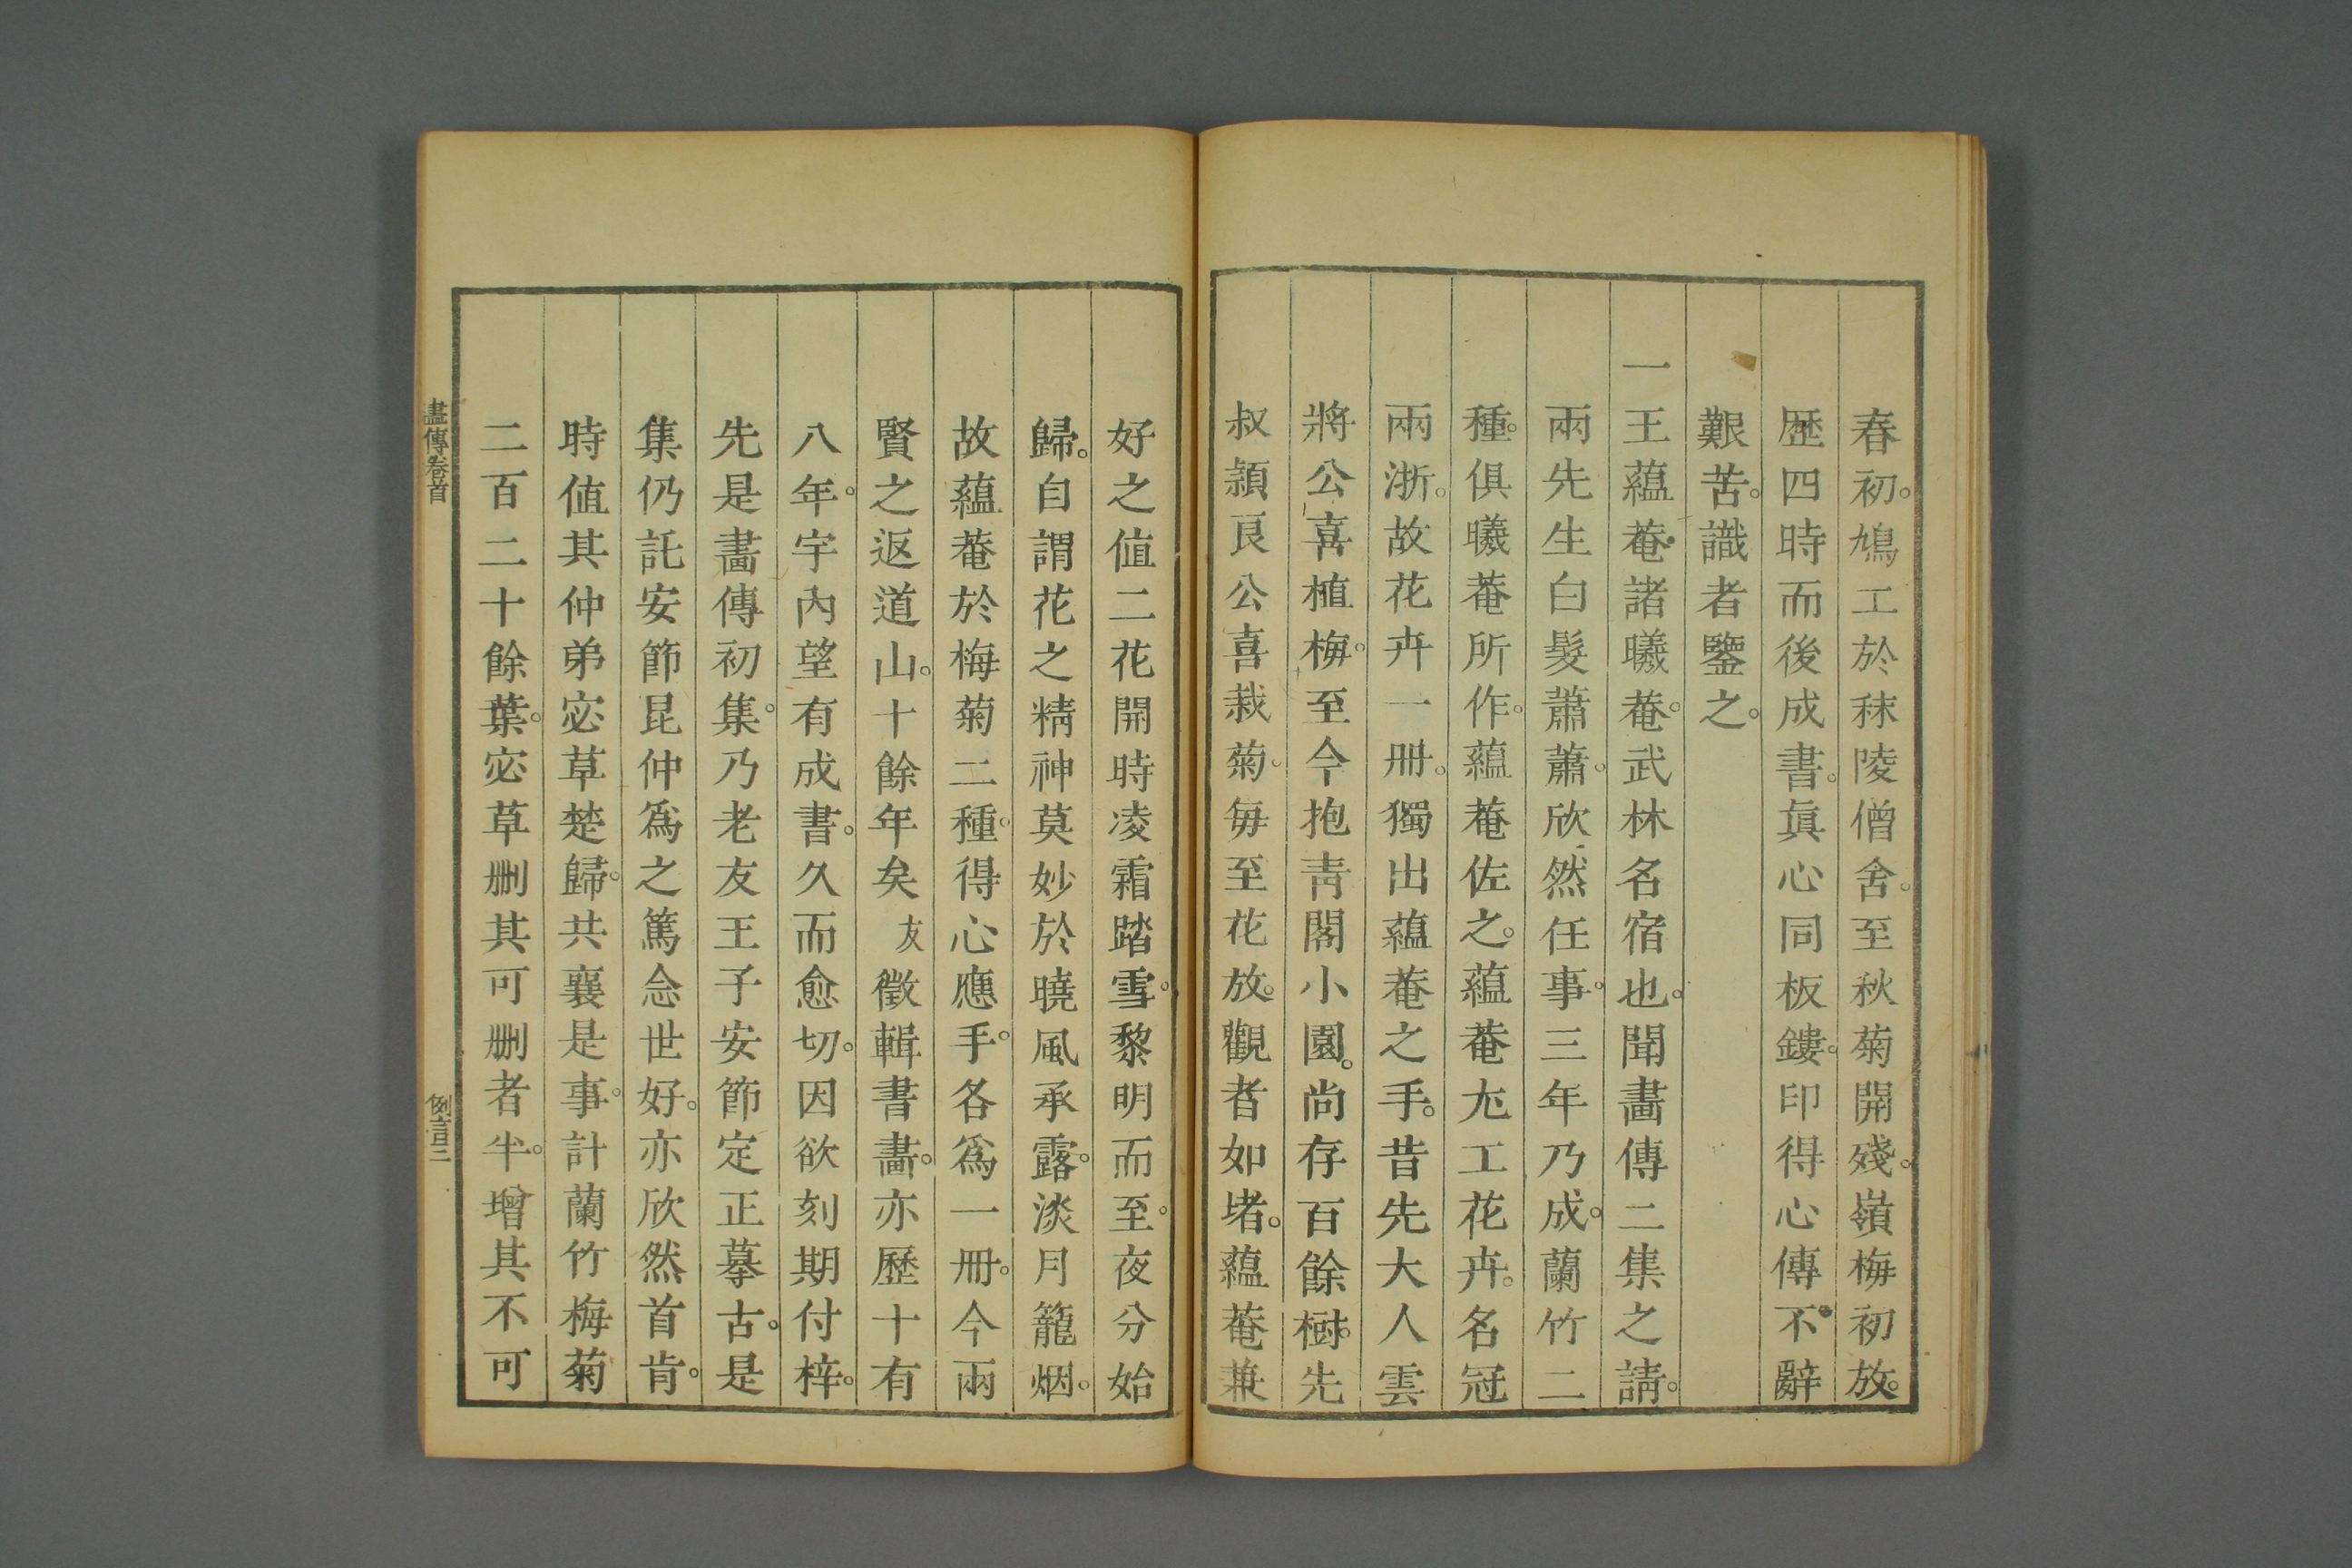 春初。鳩工於秣陵僧舍。至秋菊開殘。嶺梅初放。
歷四時而後成書。眞心同板鏤。印得心傳。不辭
艱苦。識者鑒之。
一王蘊菴。諸曦菴。武林名宿也。聞畫傳二集之請。
兩先生白髮蕭蕭。欣然任事。三年乃成。蘭竹二
種。俱曦菴所作。蘊菴佐之。蘊菴尤工花卉。名冠
兩浙。故花卉一冊。獨出蘊菴之手。昔先大人雲
將公喜植梅。至今抱靑閣小園。尚存百餘樹。先
叔頴良公喜栽菊。每至花放。觀者如堵。蘊菴兼
好之値二花開時凌霜踏雪。黎明而至。夜分始
歸。自謂花之精神莫妙於曉風承露。淡月籠烟。
故蘊菴於梅菊二種。得心應手。各爲一冊。今兩
賢之返道山。十餘年矣 友 徵輯書畫。亦歷十有
八年。宇內望有成書。久而愈切。因欲刻期付梓。
先是畫傳初集。乃老友王子安節定正摹古。是
集仍託安節昆仲爲之篤念世好。亦欣然首肯。
時値其仲弟宓草楚歸。共襄是事。計蘭竹梅菊
二百二十餘葉。宓草刪其可刪者半。增其不可
畫傳卷首
例言三